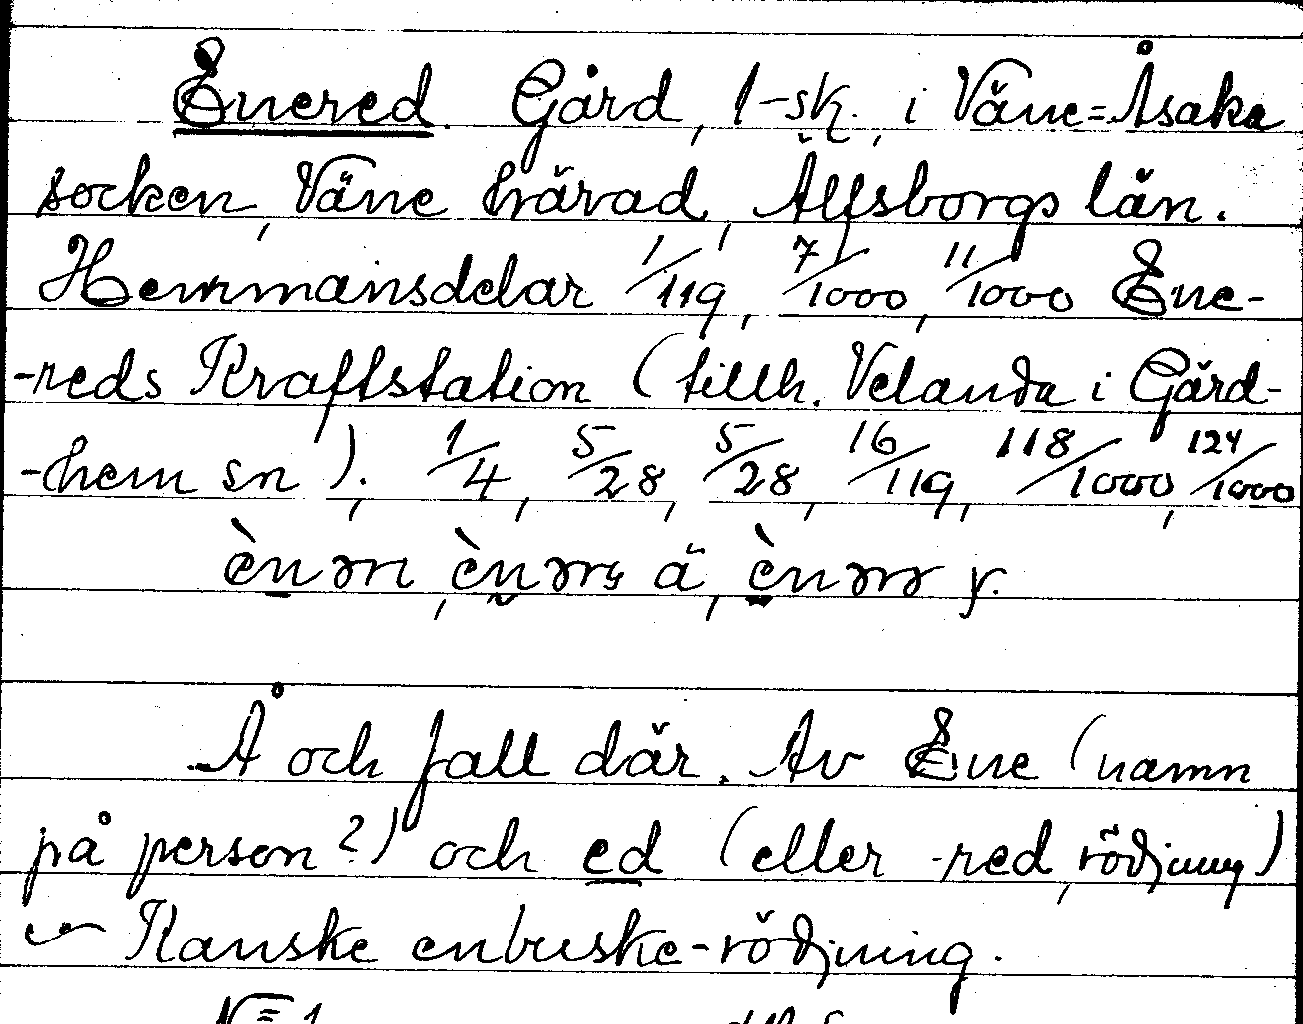 Enered. Gård, 1-sk., i Väne=Åsaka
socken, Väne härad, Älfsborgs län.
Hemmansdelar 1/119, 7/1000, 11/1000 Ene-
-reds Kraftstation (tillh. Velanda i Gärd-
-hem sn); 1/4, 5/28, 5/28, 16/119, 118/1000, 124/1000
ä, y.
Å och fall där. Av Ene (namn
på person?) och ed (eller -red, rödjning)
Kanske enbuske-rödjning.